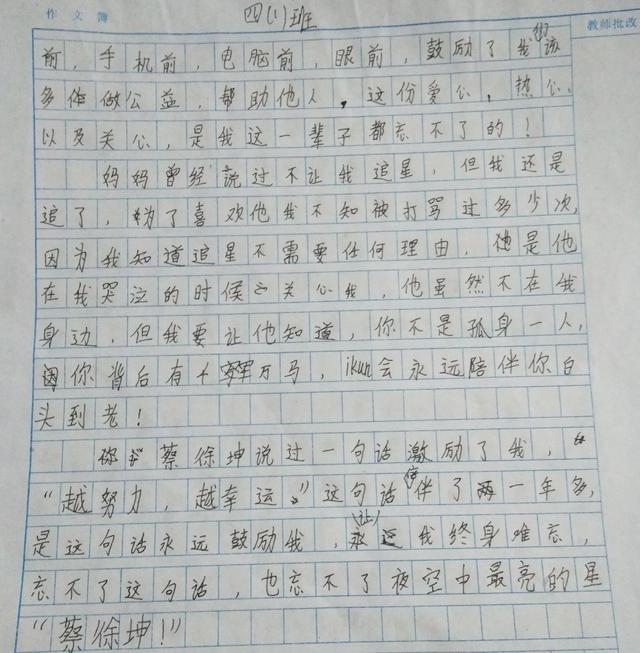 四(1)班
作文簿
教师批改
前，手机前，电脑前，眼前，鼓励了我们该
多做公益，帮助他人，这份爱心，热心
以及关心，是我这一辈子都忘不了的！
妈妈曾经说过不让我追星，但我还是
追了，为了喜欢他我不知被打骂过多少次，
因为我知道追星不需要任何理由，他是他
在我哭泣的时候关心我，他虽然不在我
身边，但我要让他知道，你不是孤身一人，
因你背后有千军万马，ikun会永远陪伴你白
头到老！
蔡徐坤说过一句话激励了我，
“越努力，越幸运。”这句话伴了一年多，
是这句话永远鼓励我，让我终身难忘，
忘不了这句话，也忘不了夜空中最亮的星
“蔡徐坤！”